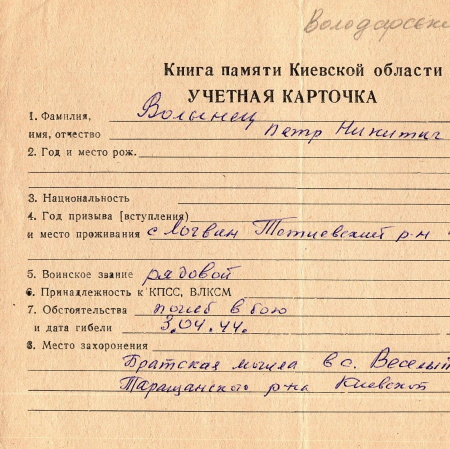 Володарский
Книга памяти Киевской области
УЧЕТНАЯ КАРТОЧКА
1. Фамилия, Волынец
имя, отчество Петр Никитич
2. Год и место рож.
3. Национальность
4. Год призыва (вступления)
и место проживания с Логвин Тетиевский р-н
5. Воинское звание рядовой
6. Принадлежность к КПСС, ВЛКСМ
7. Обстоятельства погиб в бою
и дата гибели 3.04.44.
8. Место захоронения
Братская могила в с. Веселый
Таращанского р-на Киевской